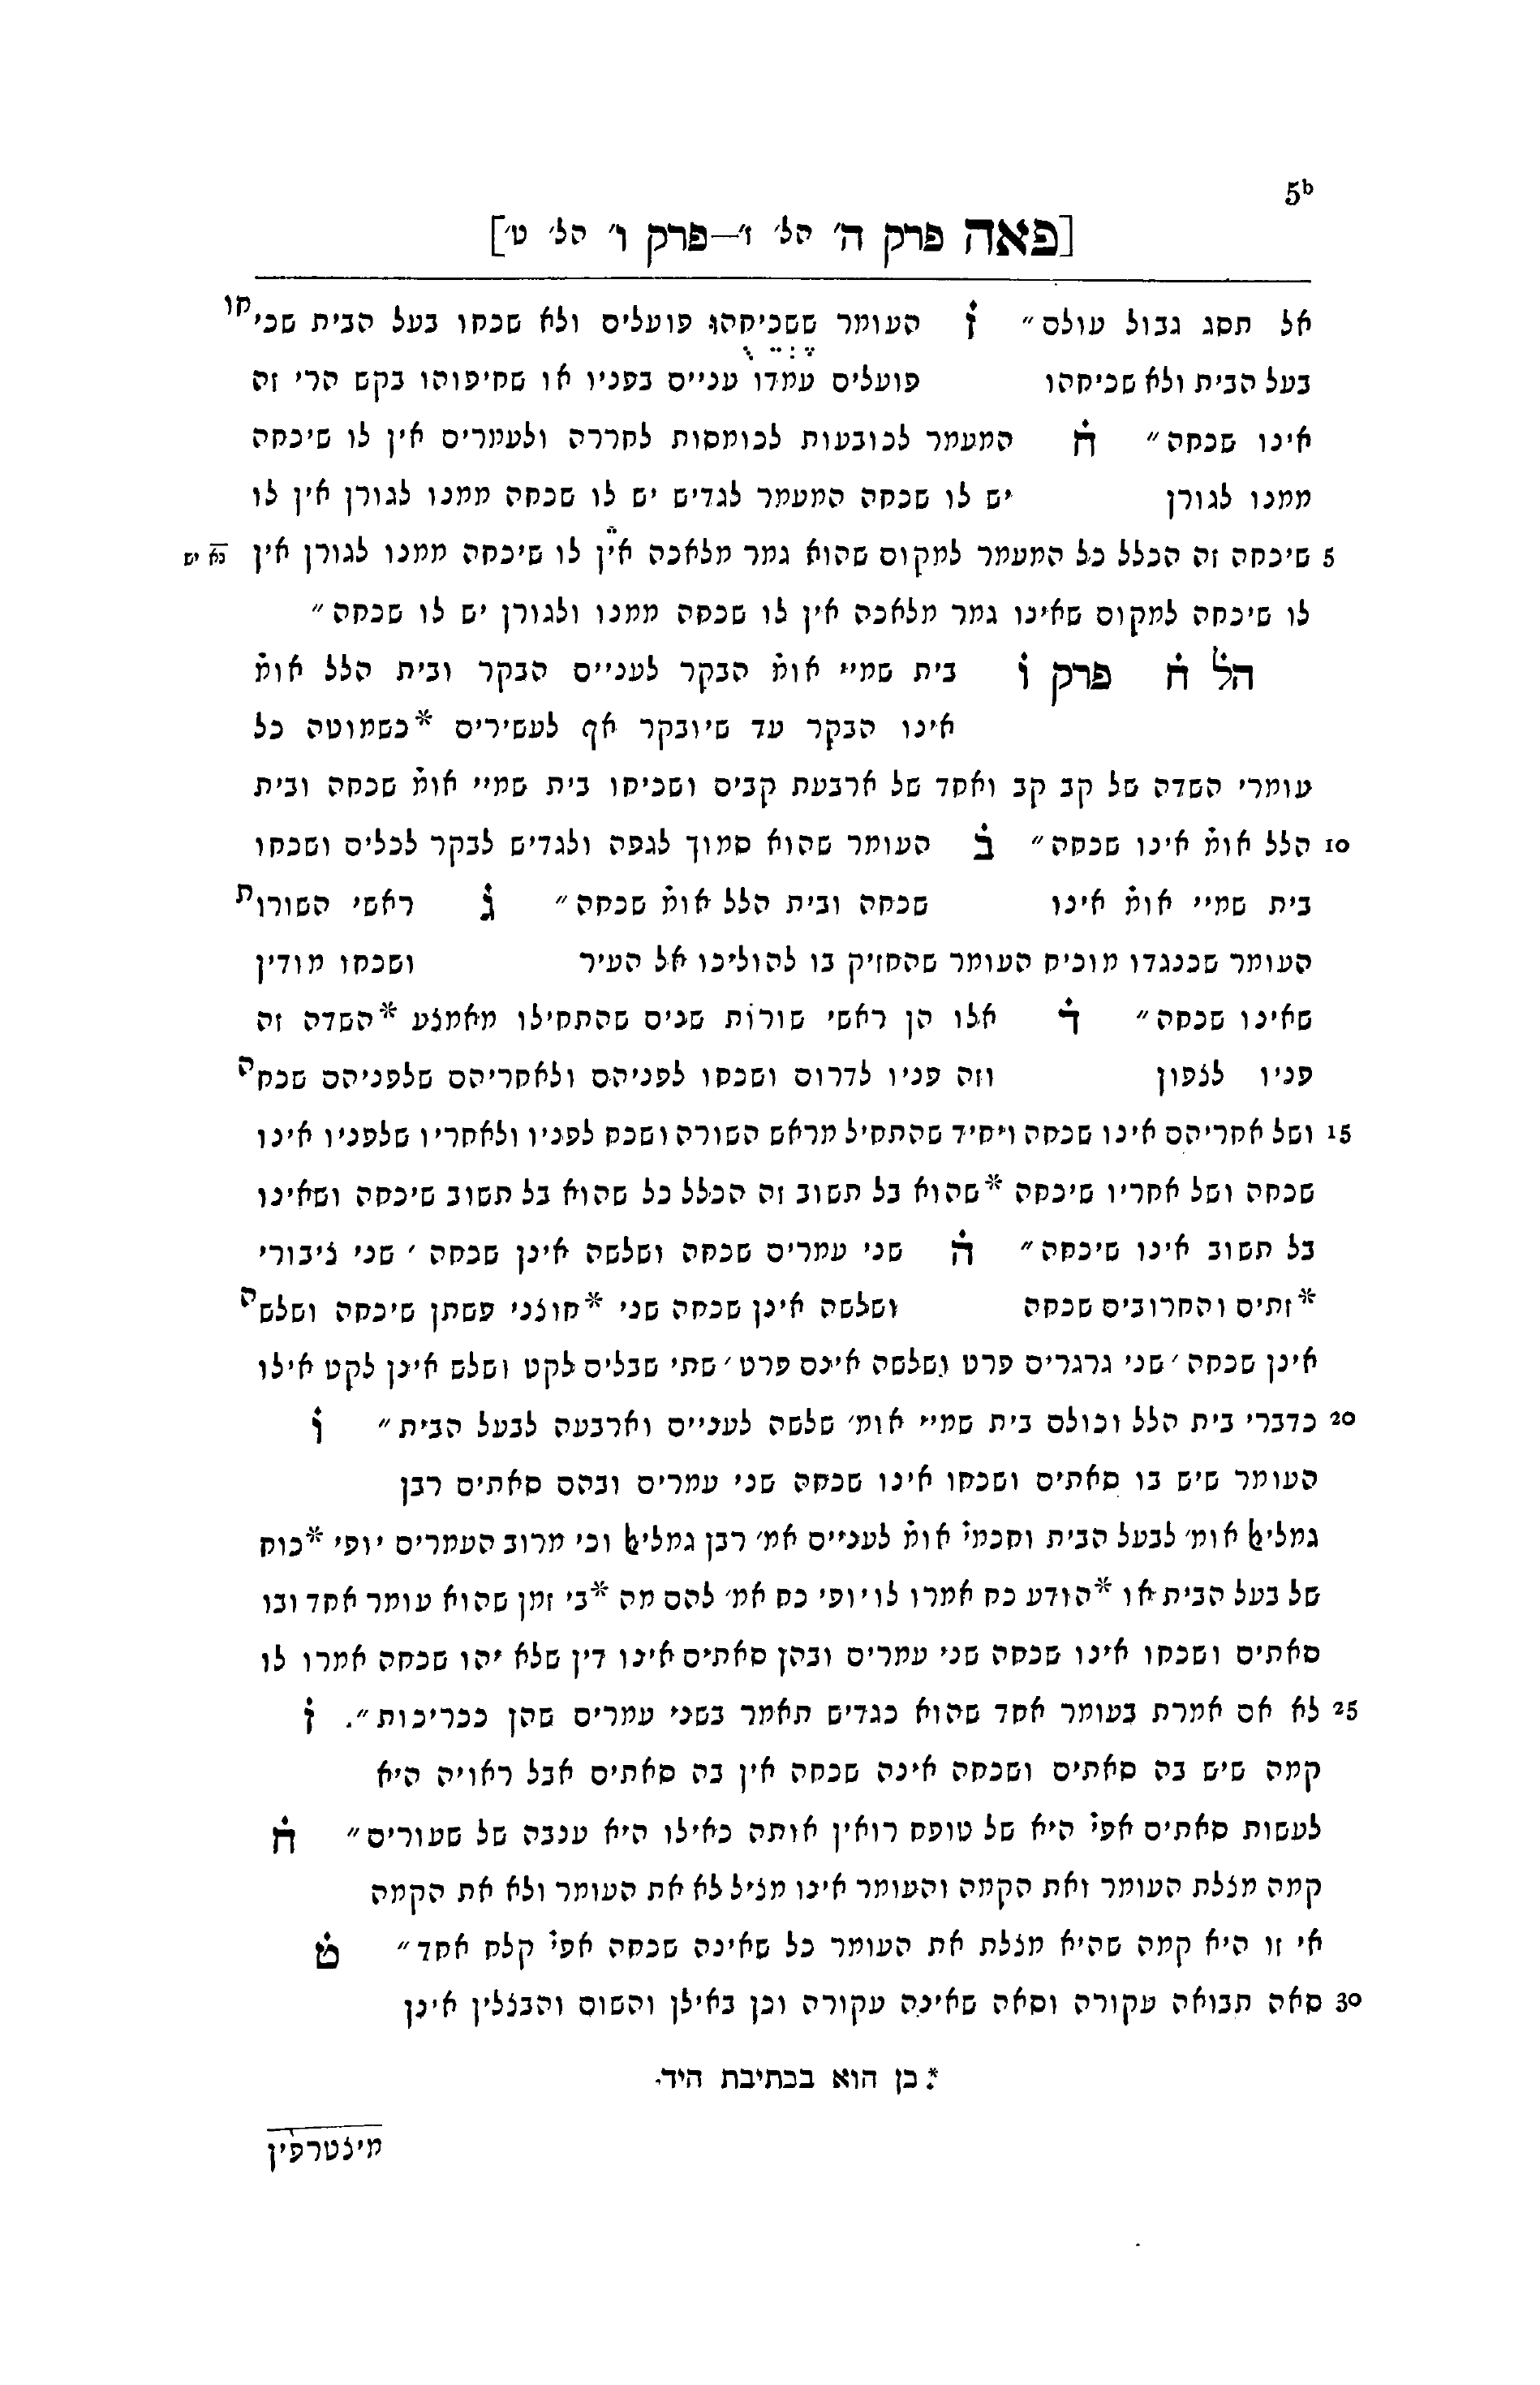 5b
[פאה פרק ה' הל' ז'—פרק ו' הל' ט']
אל תסג גבול עולם״ ז העומר ששכיחהו פועלים ולא שכחו בעל הבית שכיחו
בעל הבית ולא שכיחהו פועלים עמדו עניים בפניו או שחיפוהו בקש הרי זה
אינו שכחה״ ח המעמר לכובעות לכומסות לחררה ולעמרים אין לו שיכחה
ממנו לגורן יש לו שכחה המעמר לגדיש יש לו שכחה ממנו לגורן אין לו
5 שיכחה זה הכלל כל המעמר למקום שהוא גמר מלאכה אין לו שיכחה ממנו לגורן אין נא יש
לו שיכחה למקום שאינו גמר מלאכה אין לו שכחה ממנו ולגורן יש לו שכחה״
הל ח פרק ו בית שמיי אומ הבקר לעניים הבקר ובית הלל אומ
אינו הבקר עד שיובקר אף לעשירים *כשמוטה כל
עומרי השדה של קב קב ואחד של ארבעת קבים ושכיחו בית שמיי אומ שכחה ובית
10 הלל אומ אינו שכחה״ ב העומר שהוא סמוך לגפה ולגדיש לבקר לכלים ושכחו
בית שמיי אומ אינו שכחה ובית הלל אומ שכחה״ ג ראשי השורות
העומר שכנגדו מוכיח העומר שהחזיק בו להוליכו אל העיר ושכחו מודין
שאינו שכחה״ ד אלו הן ראשי שורות שנים שהתחילו מאמצע *השדה זה
פניו לצפון וזה פניו לדרום ושכחו לפניהם ולאחריהם שלפניהם שכחה
15 ושל אחריהם אינו שכחה ויחיד שהתחיל מראש השורה ושכח לפניו ולאחריו שלפניו אינו
שכחה ושל אחריו שיכחה *שהוא בל תשוב זה הכלל כל שהוא בל תשוב שיכחה ושאינו
בל תשוב אינו שיכחה״ ה שני עמרים שכחה ושלשה אינן שכחה ׳ שני ציבורי
*זתים והחרובים שכחה ושלשה אינן שכחה שני *חוצני פשתן שיכחה ושלשה
אינן שכחה ׳ שני גרגרים פרט ושלשה אינם פרט ׳ שתי שבלים לקט ושלש אינן לקט אילו
20 כדברי בית הלל וכולם בית שמיי אומ׳ שלשה לעניים וארבעה לבעל הבית״ ו
העומר שיש בו סאתים ושכחו אינו שכחה שני עמרים ובהם סאתים רבן
גמליאל אומ׳ לבעל הבית וחכמי אומ לעניים אמ׳ רבן גמליאל וכי מרוב העמרים יופי *כוח
של בעל הבית או *הודע כח אמרו לו יופי כח אמ׳ להם מה *בי זמן שהוא עומר אחד ובו
סאתים ושכחו אינו שכחה שני עמרים ובהן סאתים אינו דין שלא יהו שכחה אמרו לו
25 לא אם אמרת בעומר אחד שהוא כגדיש תאמר בשני עמרים שהן ככריכות״. ז
קמה שיש בה סאתים ושכחה אינה שכחה אין בה סאתים אבל ראויה היא
לעשות סאתים אפי היא של טופח רואין אותה כאילו היא ענבה של שעורים״ ח
קמה מצלת העומר ואת הקמה והעומר אינו מציל לא את העומר ולא את הקמה
אי זו היא קמה שהיא מצלת את העומר כל שאינה שכחה אפי קלח אחד״ ט
30 סאה תבואה עקורה וסאה שאינה עקורה וכן באילן והשום והבצלין אינן
*: כן הוא בכתיבת היד.
מיצטרפין